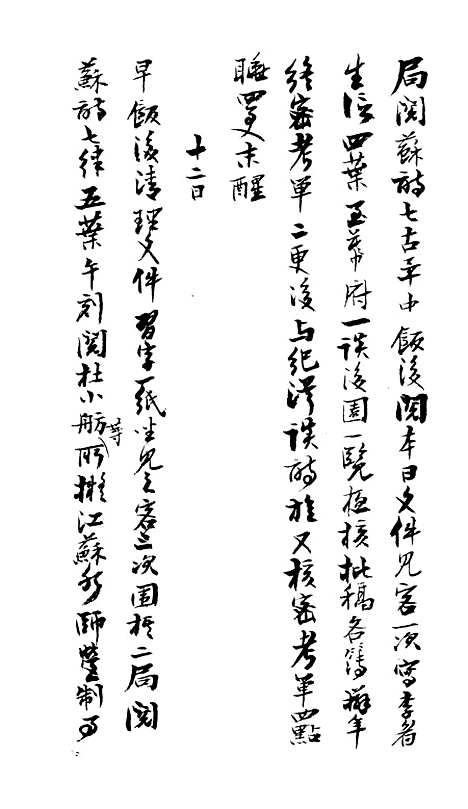 局閱蘇詩七古平中飯後閱本日文件見客一次寫李眉
生信四葉至幕府一談後園一覽夜核批稿各簿頗
核密考單二更後與紀澤談詩旋又核密考單四點
睡四更末醒
十二日
早飯後清理文件習字一紙坐見之客三次圍棋二局閱
蘇詩七律五葉午刻閱杜小舫等所擬江蘇水師營制因